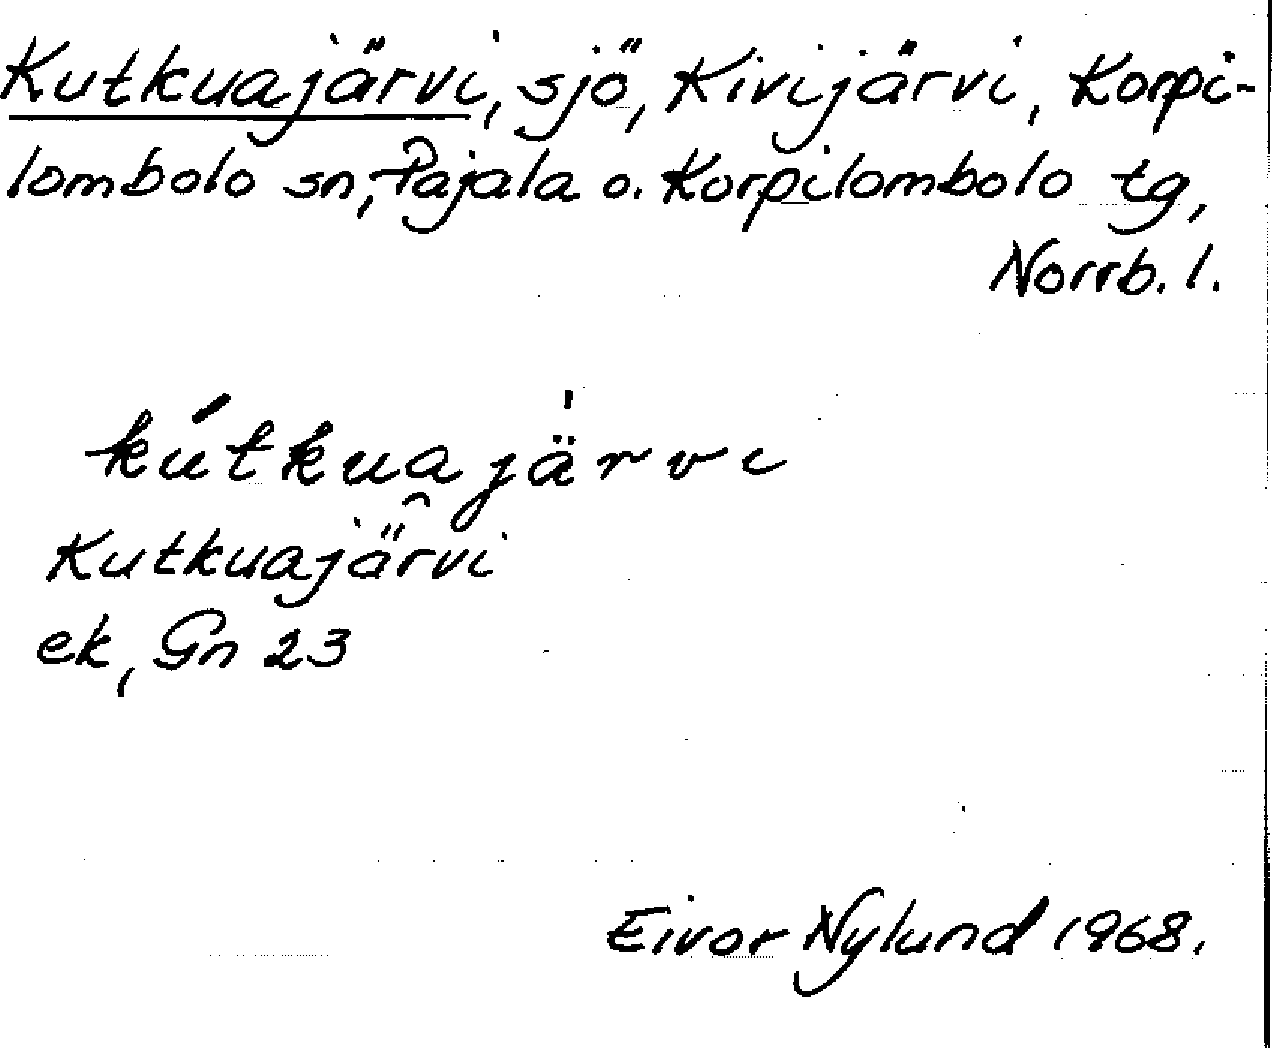 Kutkuajärvi, sjö, Kivijärvi, Korpi-
lombolo sn, Pajala o. Korpilombolo tg,
Norrb. l.
kútkuajä̍rvi
Kutkuajärvi
ek, Gn 23
Eivor Nylund 1968.